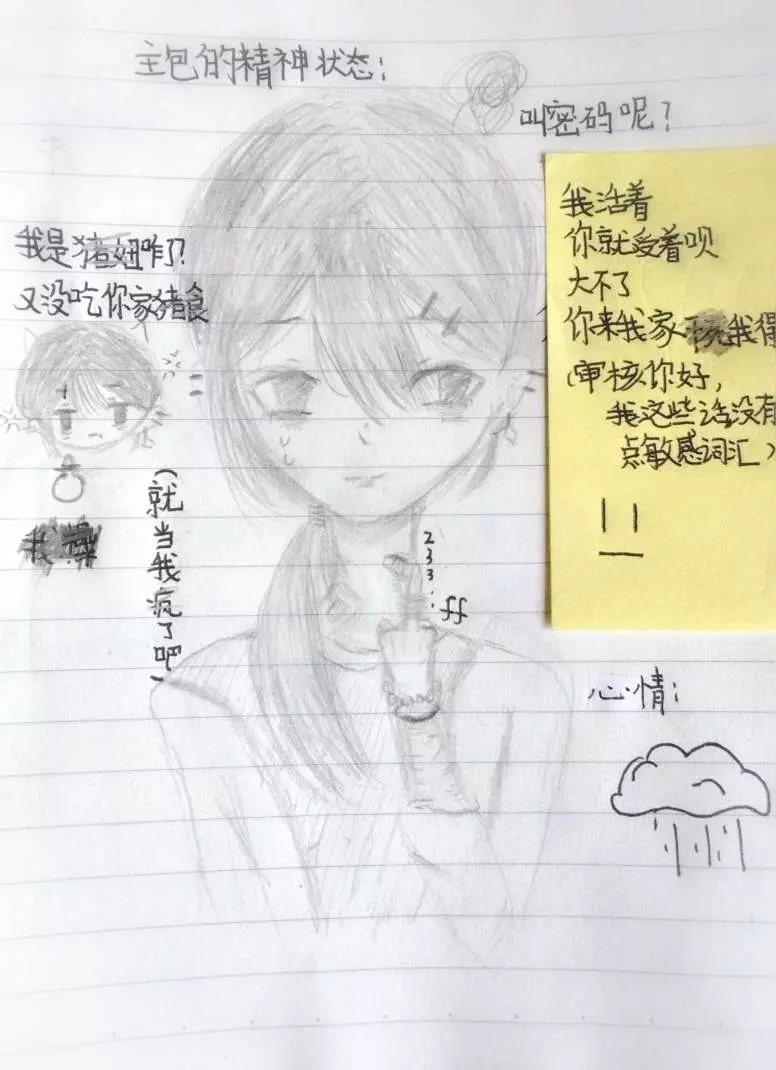 主包的精神状态：
叫密码呢？
我是猪妞咋了？
又没吃你家猪食
我活着
你就受着呗
大不了
你来我家 我得
（审核你好，
我这些话没有
点敏感词汇）
（就当我疯了吧）
233:
ff
我
心情：